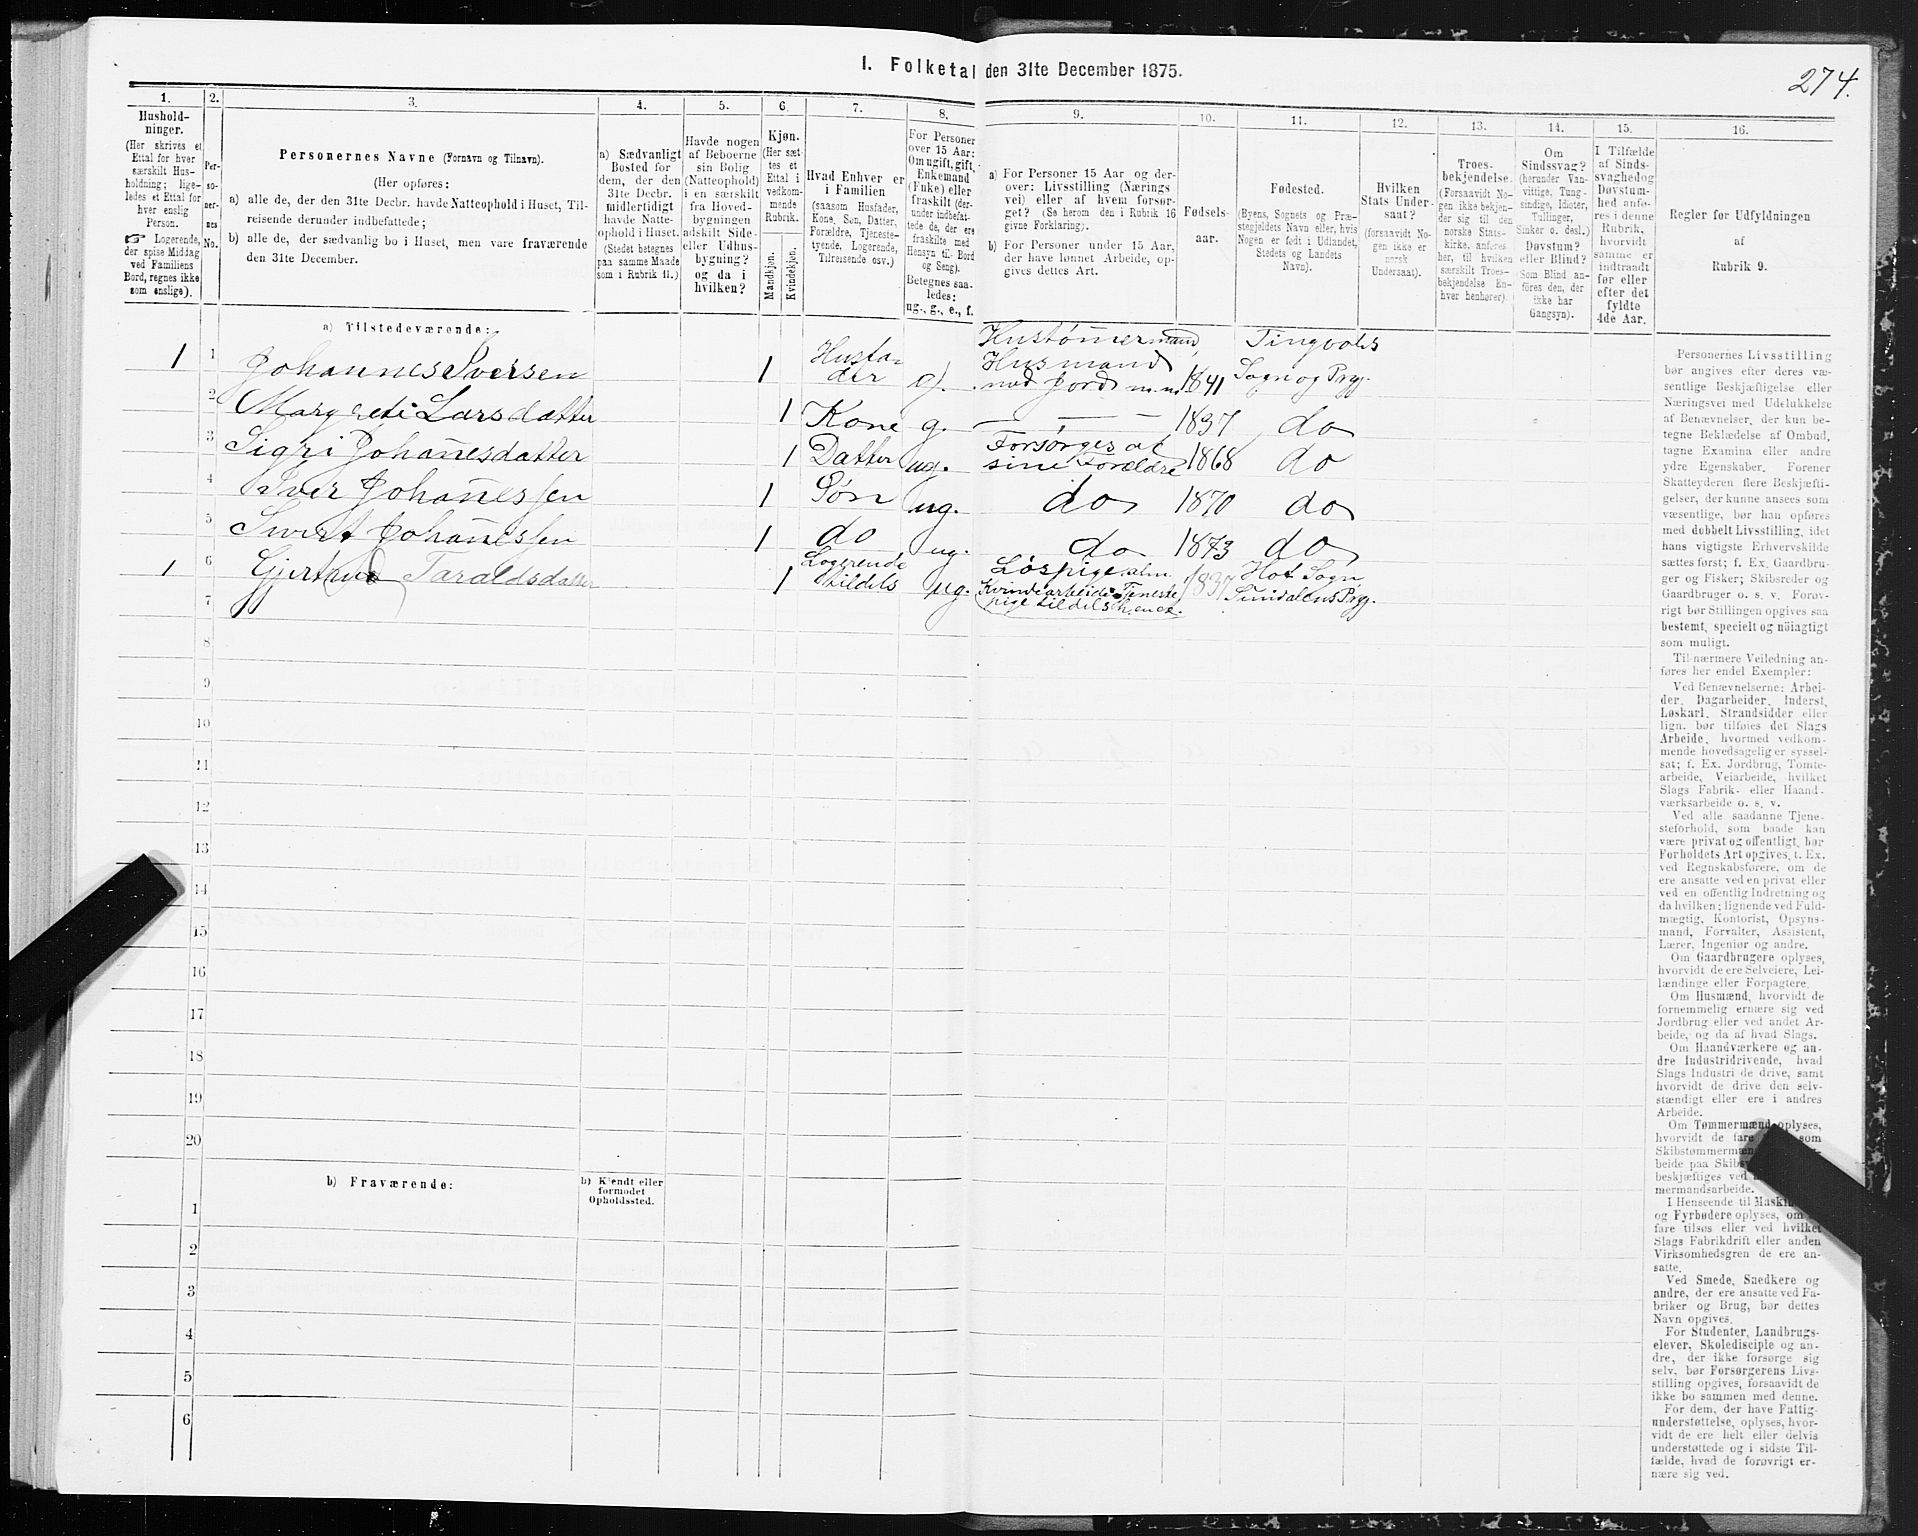 I. Folketal den 31te December 1875.
274.
1.
2.
3.
4.
5.
6.
7.
8.
9.
10.
11.
12.
13.
14.
15.
16.
Hushold-
ninger.
(Her skrives et
Ettal for hver
særskilt Hus-
holdning; lige-
ledes et Ettal for
hver enslig
Person.
☞ Logerende,
der spise Middag
ved Familiens
Bord, regnes ikke
som enslige).
Per-
so-
ner-
nes
No.
Personernes Navne (Fornavn og Tilnavn).
(Her opføres:
a) alle de, der den 31te Decbr. havde Natteophold i Huset, Til-
reisende derunder indbefattede;
b) alle de, der sædvanlig bo i Huset, men vare fraværende
den 31te December.
a) Sædvanligt
Bosted for
dem, der den
31te Decbr.
midlertidigt
havde Natte-
ophold i Huset.
(Stedet betegnes
paa samme Maade
som i Rubrik 11.)
Havde nogen
af Beboerne
sin Bolig
(Natteophold)
i en særskilt
fra Hoved-
bygningen
adskilt Side-
eller Udhus-
bygning?
og da i
hvilken?
Kjøn.
(Her sæt-
tes et
Ettal i
vedkom-
mende
Rubrik.
Mandkjøn.
Kvindekjøn.
Hvad Enhver er
i Familien
(saasom Husfader,
Kone, Søn, Datter,
Forældre, Tjeneste-
tyende, Logerende,
Tilreisende osv.)
For Personer
over 15 Aar:
Om ugift, gift,
Enkemand
(Enke) eller
fraskilt (der-
under indbefat-
tede de, der ere
fraskilte med
Hensyn til Bord
og Seng).
Betegnes saa-
ledes:
ug., g., e., f.
a) For Personer 15 Aar og der-
over: Livsstilling (Nærings
vei) eller af hvem forsør-
get? (Se herom den i Rubrik 16
givne Forklaring).
b) For Personer under 15 Aar,
der have lønnet Arbeide, op-
gives dettes Art.
Fødsels-
aar.
Fødested.
(Byens, Sognets og Præ-
stegjeldets Navn eller, hvis
Nogen er født i Udlandet,
Stedets og Landets
Navn).
Hvilken
Stats Under-
saat?
(forsaavidt No-
gen ikke er
norsk
Undersaat).
Troes-
bekjendelse.
(Forsaavidt No-
gen ikke bekjen-
der sig til den
norske Stats-
kirke, anføres
her, til hvilken
særskilt Troes-
bekjendelse En-
hver henhører).
Om
Sindssvag?
(herunder Van-
vittige, Tung-
sindige, Idioter,
Tullinger,
Sinker o. desl.)
Døvstum?
eller Blind?
(Som Blind an-
føres den, der
ikke har
Gangsyn).
I Tilfælde
af Sinds-
svaghed og
Døvstum-
hed anfø-
res i denne
Rubrik,
hvorvidt
samme er
indtraadt
før eller
efter det
fyldte
4de Aar.
Regler for Udfyldningen
af
Rubrik 9.
a) Tilstedeværende:
1 1 Johannes Iversen 1 Husfa-
der g. Hustømermand,
Husmand
med Jord m.m. 1841 Tingvolds
Sogn og Prgj.
2 Margreti Larsdatter 1 Kone g. — — 1837 do
3 Sigri Johanesdatter 1 Datter ug. Forsørges af
sine Forældre 1868 do
4 Iver Johanessen 1 Søn ug. do 1870 do
5 Sivert Johanessen 1 do ug. do 1873 do
1 6 Gjertrud Taraldsdatter 1 Logerende
tildels ug. Løspige alm
Kvindearbeide Tjeneste
pige tildels 1837 Hof Sogn
Sundalens Prgj.
7
8
9
10
11
12
13
14
15
16
17
18
19
20
b) Fraværende:
b) Kjendt eller
formodet
Opholdssted.
1
2
3
4
5
6
Personernes Livsstilling
bør angives efter deres væ-
sentlige Beskjæftigelse eller
Næringsvei med Udelukkelse
af Benævnelser, der kun be-
tegne Beklædelse af Ombud,
tagne Examina eller andre
ydre Egenskaber. Forener
Skatteyderen flere Beskjæfti-
gelser, der kunne ansees som
væsentlige, bør han opføres
med dobbelt Livsstilling, idet
hans vigtigste Erhvervskilde
sættes først; f. Ex. Gaardbru-
ger og Fisker; Skibsreder og
Gaardbruger o. s. v. Forøv-
rigt bør Stillingen opgives saa
bestemt, specielt og nöiagtigt
som muligt.
Til nærmere Veiledning an-
føres her endel Exempler:
Ved Benævnelserne: Arbei-
der, Dagarbeider, Inderst,
Løskarl, Strandsidder eller
lign. bør tilføies det Slags
Arbeide, hvormed vedkom-
mende hovedsagelig er syssel-
sat; f. Ex. Jordbrug, Tomte-
arbeide, Veiarbeide, hvilket
Slags Fabrik- eller Haand-
værksarbeide o. s. v.
Ved alle saadanne Tjene-
steforhold, som baade kan
være privat og offentligt, bør
Forholdets Art opgives, t. Ex.
ved Regnskabsførere, om de
ere ansatte ved en privat eller
ved en offentlig Indretning og
da hvilken; lignende ved Fuld-
mægtig, Kontorist, Opsyns-
mand, Forvalter, Assistent,
Lærer, Ingeniør og andre.
Om Gaardbrugere oplyses,
hvorvidt de ere Selveiere, Lei-
lændinge eller Forpagtere.
Om Husmænd, hvorvidt de
fornemmelig ernære sig ved
Jordbrug eller ved andet Ar-
beide, og da af hvad Slags.
Om Haandværkere og an-
dre Industridrivende, hvad
Slags Industri de drive, samt
hvorvidt de drive den selv-
stændigt eller ere i andres
Arbeide.
Om Tømmermænd oplyses,
hvorvidt de fare som
Skibstømmermæn
beide paa Skibs
beskjæftiges ved
mermandsarbeide.
I Henseende til Maskin
og Fyrbødere oplyses, om
fare tilsøs eller ved hvilket
Slags Fabrikdrift eller anden
Virksomhedsgren de ere an-
satte.
Ved Smede, Snedkere og
andre, der ere ansatte ved Fa-
briker og Brug, bør dettes
Navn opgives.
For Studenter, Landbrugs-
elever, Skoledisciple og an-
dre, der ikke forsørge sig
selv, bør Forsørgerens Livs-
stilling opgives, forsaavidt de
ikke bo sammen med denne.
For dem, der have Fattig-
understøttelse, oplyses, hvor-
vidt de ere helt eller delvis
understøttede og i sidste Til-
fælde, hvad de forøvrigt er-
nære sig ved.